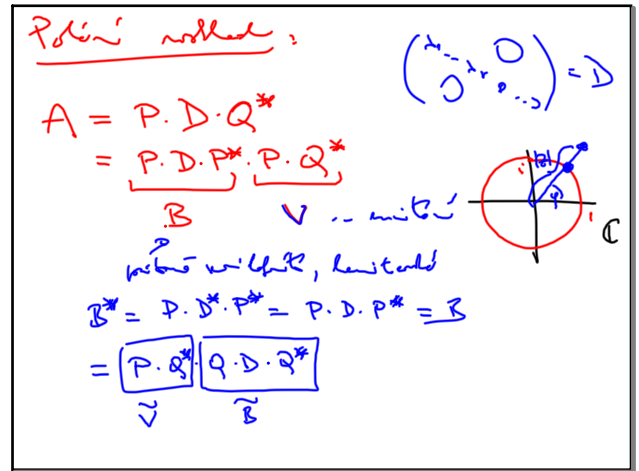 Polární rozklad :
( λ₁ ... λᵣ 0 ... 0 ) = D
A = P · D · Q*
= P · D · P* · P · Q*
B V ... unitární
|z| φ i 1 ℂ
pozitivně semidefinitní, hermitovská
B* = P · D* · P* = P · D · P* = B
= P · Q* · Q · D · Q*
Ṽ B̃